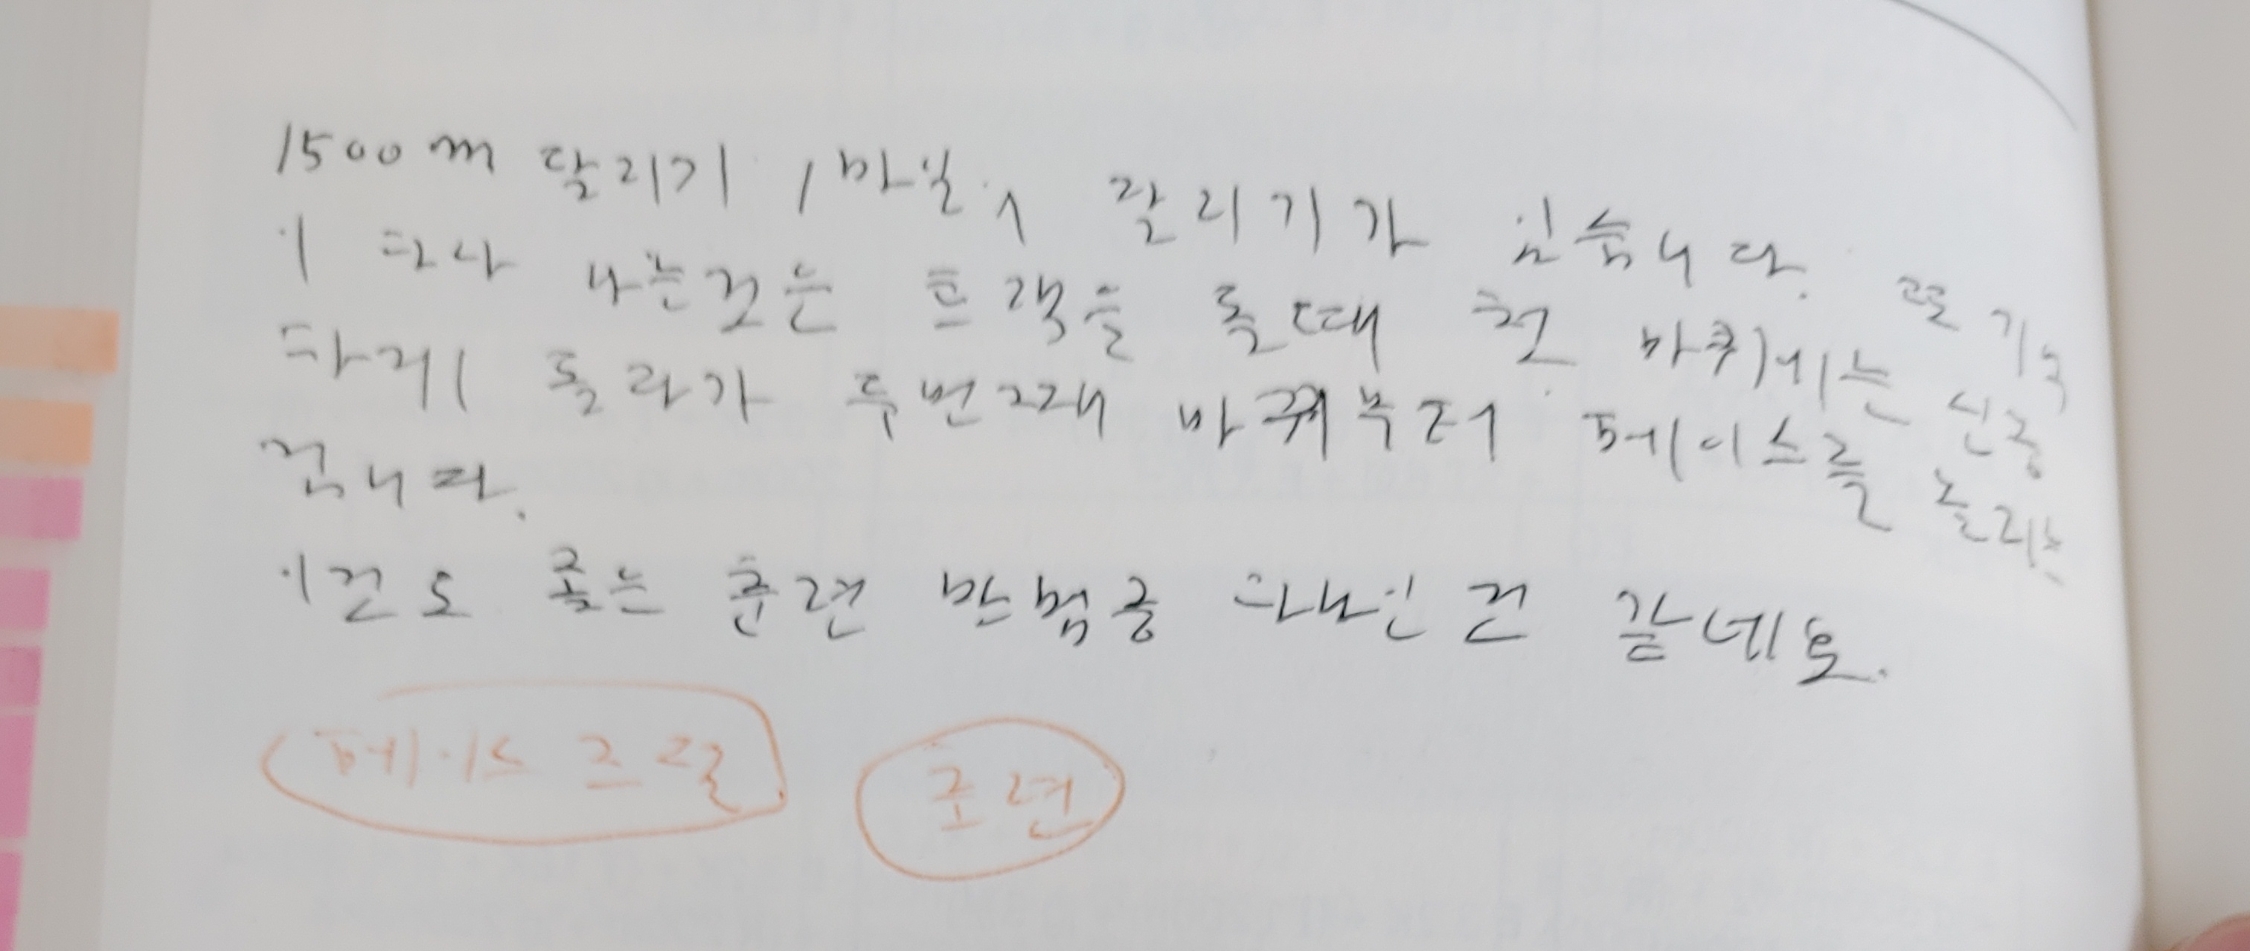 1500m 달리기 1마일, 달리기가 있습니다. 또 기억
이 하나 나는것은 트랙을 돌때 첫 바퀴에는 신중
하게 돌라가 두번째 바퀴부터 페이스를 올리는
겁니다.
이것도 좋은 훈련 방법중 하나인 것 같네요.
페이스 조절 훈련